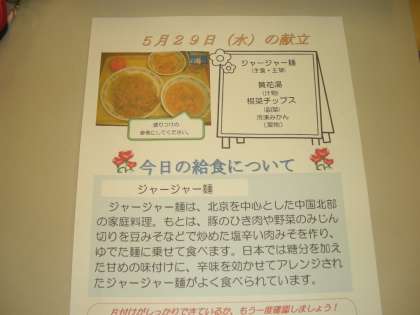 5月29日（水）の献立
ジャージャー麺
（主食・主菜）
黄花湯
（汁物）
根菜チップス
（副菜）
冷凍みかん
（果物）
盛りつけの
参考にしてください。
今日の給食について
ジャージャー麺
ジャージャー麺は、北京を中心とした中国北部
の家庭料理。もとは、豚のひき肉や野菜のみじん
切りを豆みそなどで炒めた塩辛い肉みそを作り、
ゆでた麺に乗せて食べます。日本では糖分を加え
た甘めの味付けに、辛味を効かせてアレンジされ
たジャージャー麺がよく食べられています。
片付けがしっかりできているか、もう一度確認しましょう！